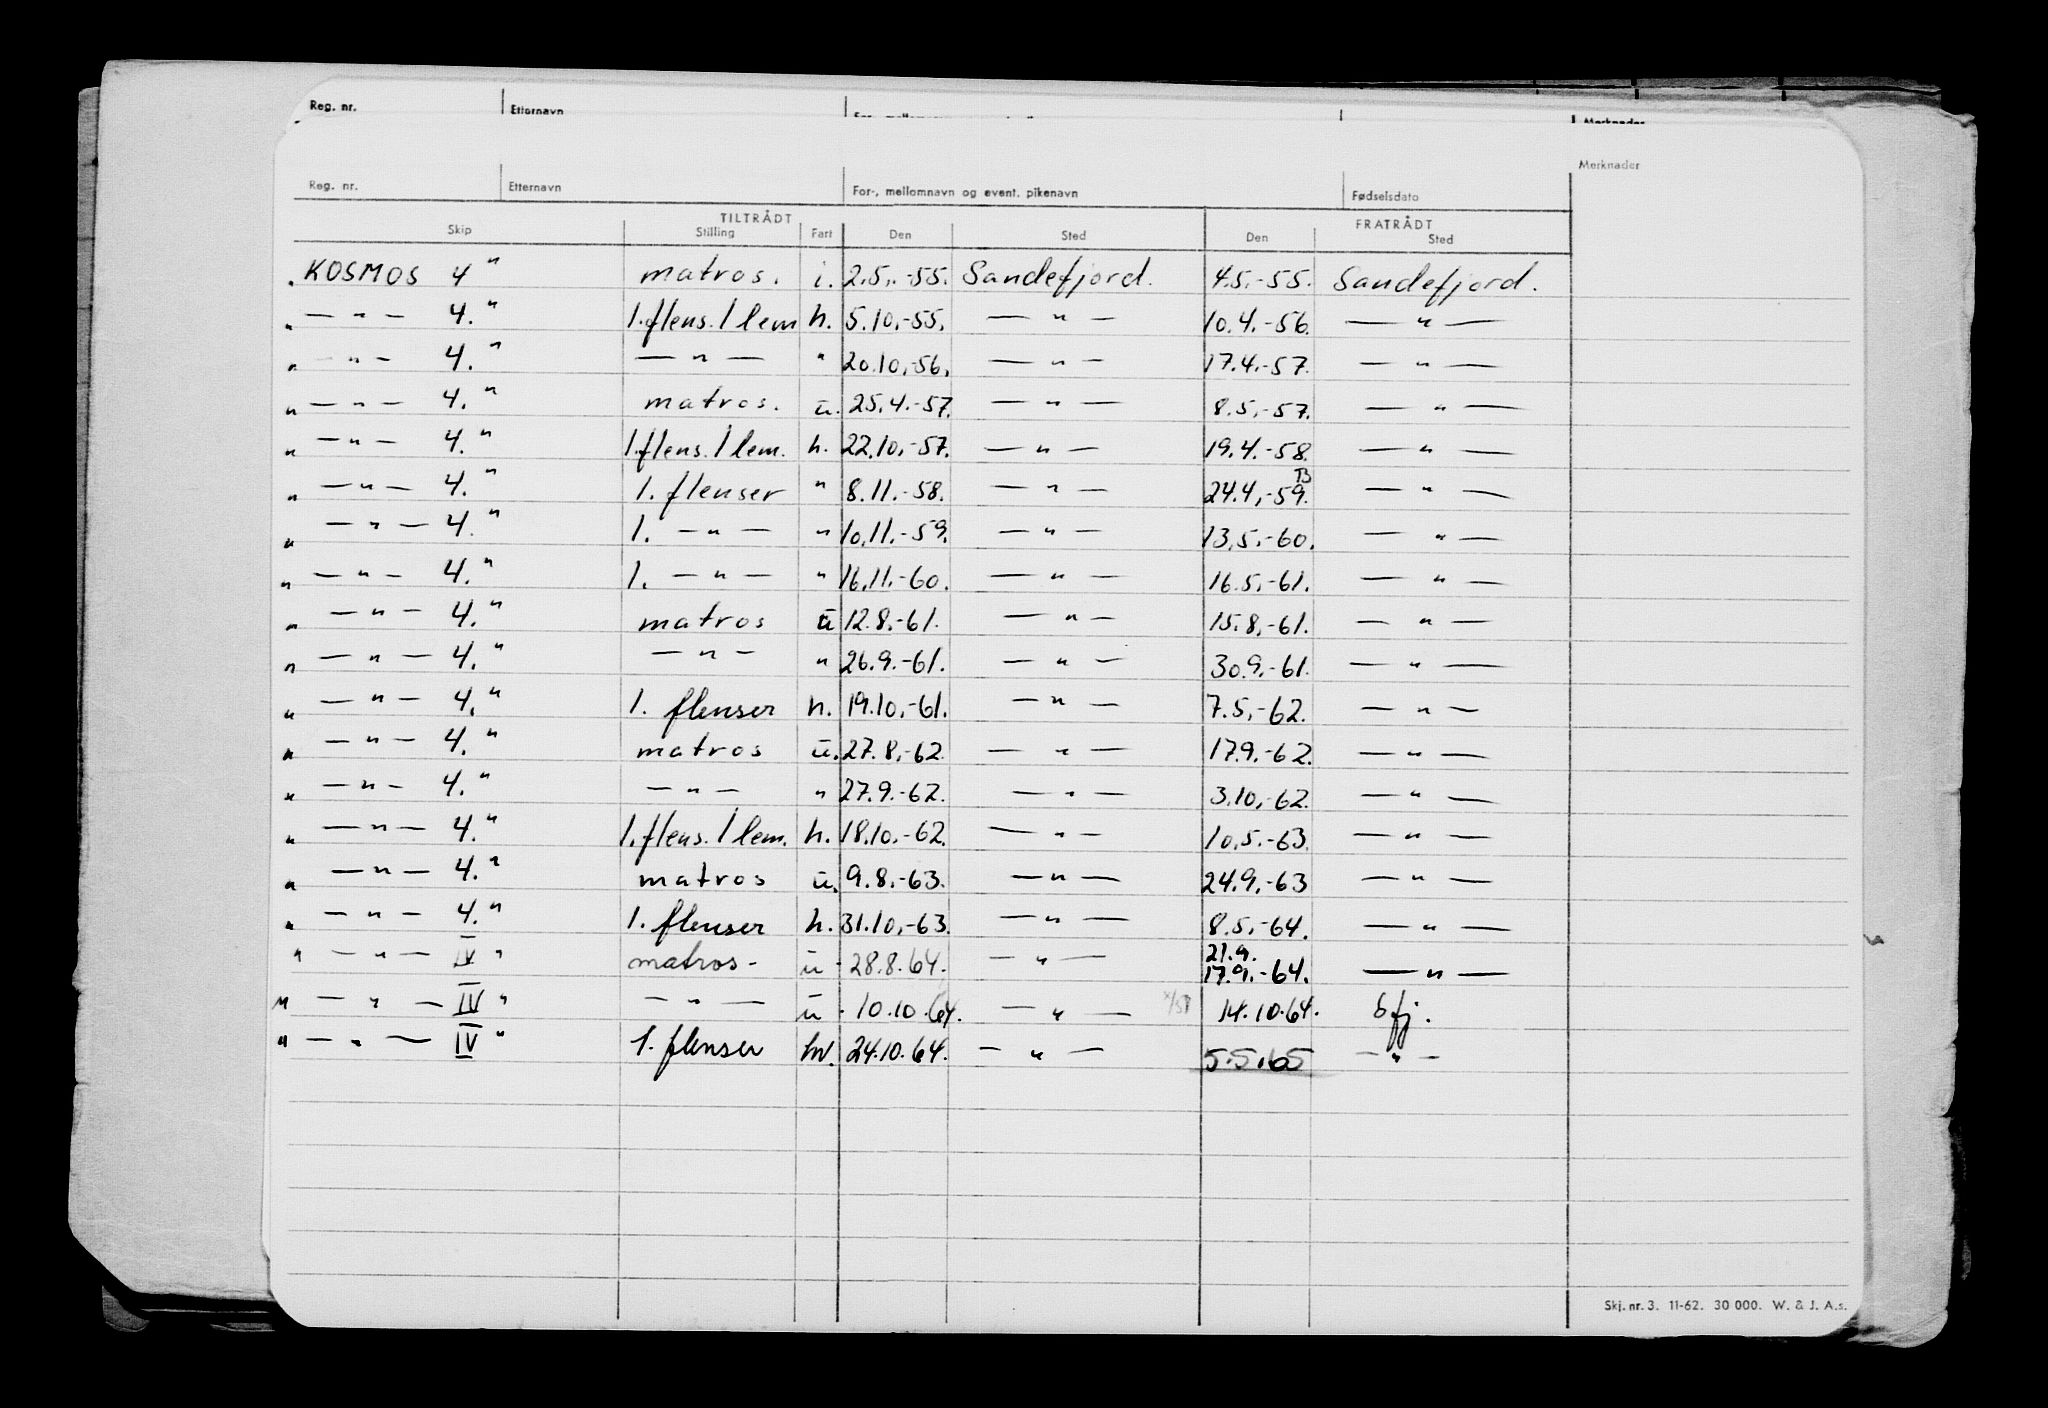 Reg. nr. Etternavn Merknader
Merknader
Reg. nr. Etternavn For-, mellomnavn og event. pikenavn Fødselsdato
TILTRÅDT FRATRÅDT
Skip Stilling Fart Den Sted Den Sted
"KOSMOS 4" matros. i. 2.5.-55. Sandefjord. 4.5.-55. Sandefjord.
" — " — 4." 1.flens./lem h. 5.10.-55. — " — 10.4.-56. — " —
" — " — 4." — " — " 20.10.-56. — " — 17.4.-57. — " —
" — " — 4." matros. u. 25.4.-57. — " — 8.5.-57. — " —
" — " — 4." 1.flens./lem. h. 22.10.-57. — " — 19.4.-58. — " —
" — " — 4." 1. flenser " 8.11.-58. — " — 24.4.-59. — " —
" — " — 4." 1. — " — " 10.11.-59. — " — 13.5.-60. — " —
" — " — 4." 1. — " — " 16.11.-60. — " — 16.5.-61. — " —
" — " — 4." matros u 12.8.-61. — " — 15.8.-61. — " —
" — " — 4." — " — " 26.9.-61. — " — 30.9.-61. — " —
" — " — 4." 1. flenser h. 19.10.-61. — " — 7.5.-62. — " —
" — " — 4." matros u. 27.8.-62. — " — 17.9.-62. — " —
" — " — 4." — " — " 27.9.-62. — " — 3.10.-62. — " —
" — " — 4." 1.flens./lem. h. 18.10.-62. — " — 10.5.-63. — " —
" — " — 4." matros u. 9.8.-63. — " — 24.9.-63 — " —
" — " — 4." 1. flenser h. 31.10.-63. — " — 8.5.-64. — " —
21.9.
" — " — IV " matros - u - 28.8.64. — " — 17.9.-64. — " —
" — " — IV " — " — u - 10.10.64. — " — 14.10.64. Sfj.
" — " — IV " 1. flenser hv. 24.10.64. — " — 5.5.65 — " —
Skj. nr. 3. 11-62. 30 000. W. & J. A.s.